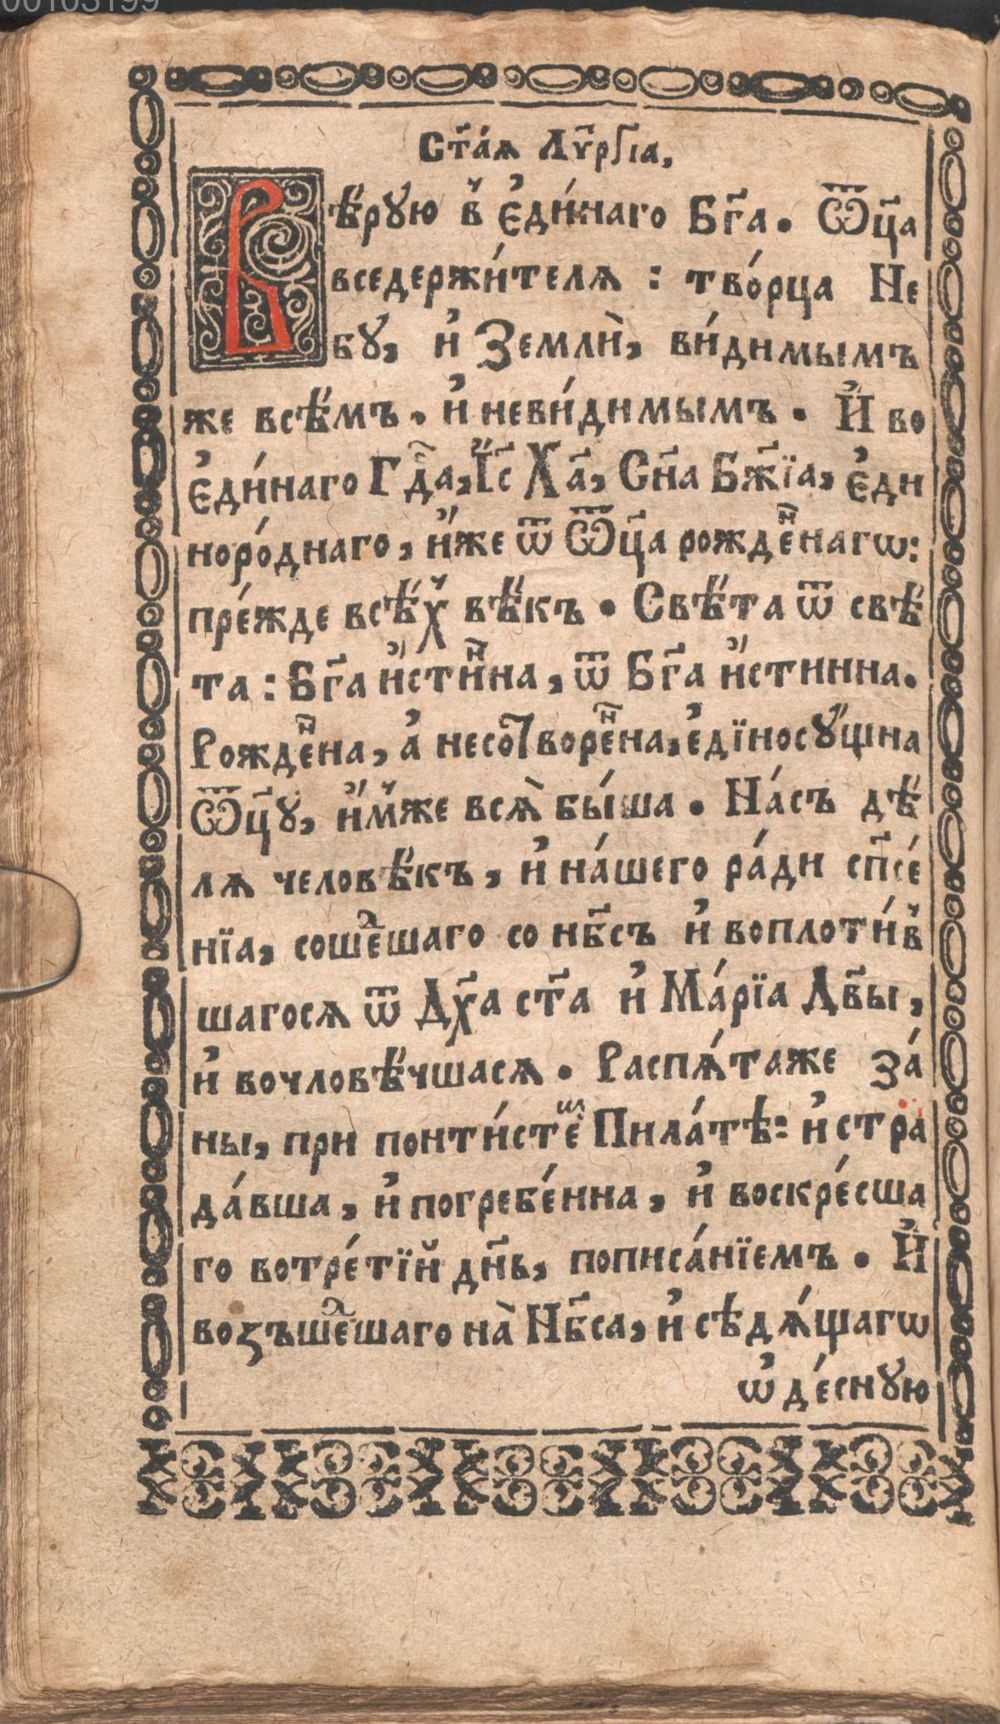 00103199
Ст҃а́ѧ Лѵ҃рг҇іа,
Вѣ́рꙋю в̾ є҆ди́наго Бг҃а. Ѿц҃а
вседержи́телѧ : тво́рца Не
бꙋ̀, и҆ Земли̾, ви́димымъ
же всѣ́мъ, и҆ неви́димымъ. И҆ во
є҆ди́наго Гд҇а, І҆с҃ Ха҃, Сн҃а Бж҃їа, є҆ди
норо́днаго, и҆́же ѿ Ѿц҃а рожде́ⷩнагѡ:
пре́жде всѣ́х̾ вѣ́къ. Свѣ́та ѿ свѣ́
та : Бг҃а и҆́стиⷩна, ѿ Бг҃а и҆́стинна.
Рожде́ⷩна, а҆ несоⷮворе́ⷩна, є҆дїносꙋ́щна
Ѿц҃ꙋ, и҆́м̾же всѧ̀ бы́ша. На́съ дѣ́
лѧ человѣ́къ, и҆ на́шего ра́ди сп҃се́
нїа, соше́ⷣшаго со нб҃съ и҆ воплоти́в̾
шагосѧ ѿ Дх҃а ст҃а и҆ Ма́рїа Дв҃ы,
и҆ вочловѣ́чшасѧ. Распѧ́таже за́
ны, при понти́стеⷨ Пила́тѣ: и҆ стра
да́вша, и҆ погребе́нна, и҆ воскре́сша
го вотре́тїй дн҃ь, пописа́нїемъ. И҆
возъше́ⷣшаго на̀ Нб҃са, и҆ сѣдѧ́щагѡ
ѡ҆ де́сную